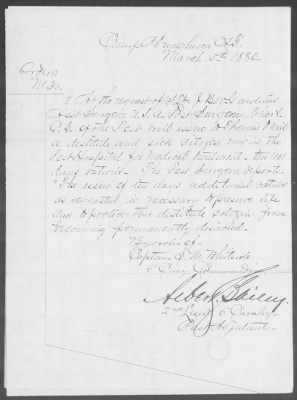 Camp Huachuca A.T.
March 5th 1880.
Orders
No.
At the request of
Asst Surgeon, U.S.A. Post Surgeon, the
C.S. of the Post will issue to Thomas
a destitute and sick citizen now in the
Post Hospital for medical treatment, ten (10)
days rations. The Post Surgeon reports
"The issue of ten days additional rations
as requested is necessary to preserve life
and to protect this destitute citizen from
becoming permanently disabled.
By order of
Captain S. M. Whitside
6" Cav'y Commanding
Albert Bailey
2nd Lieut 6" Cavalry
Post Adjutant.